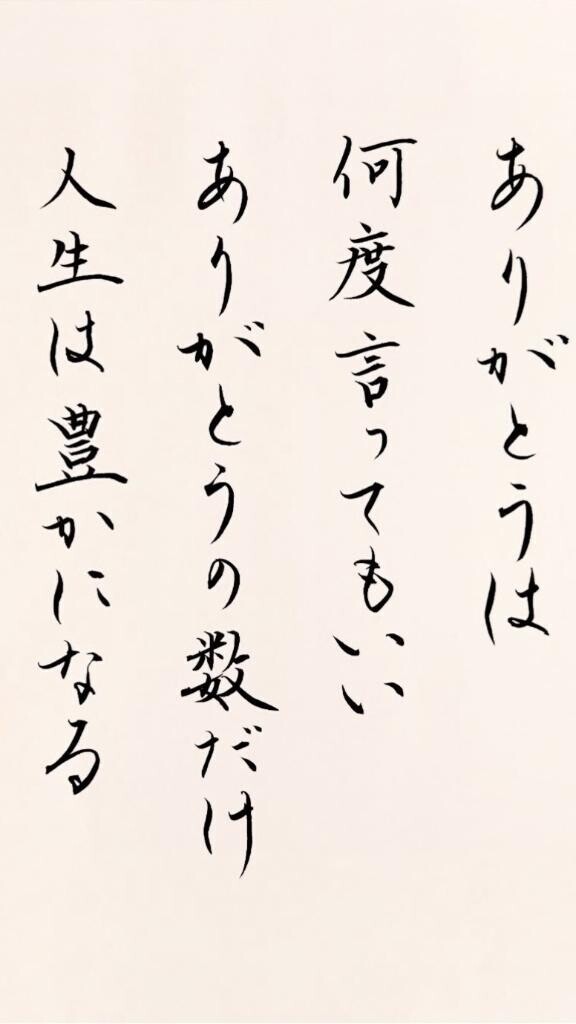 ありがとうは
何度言ってもいい
ありがとうの数だけ
人生は豊かになる